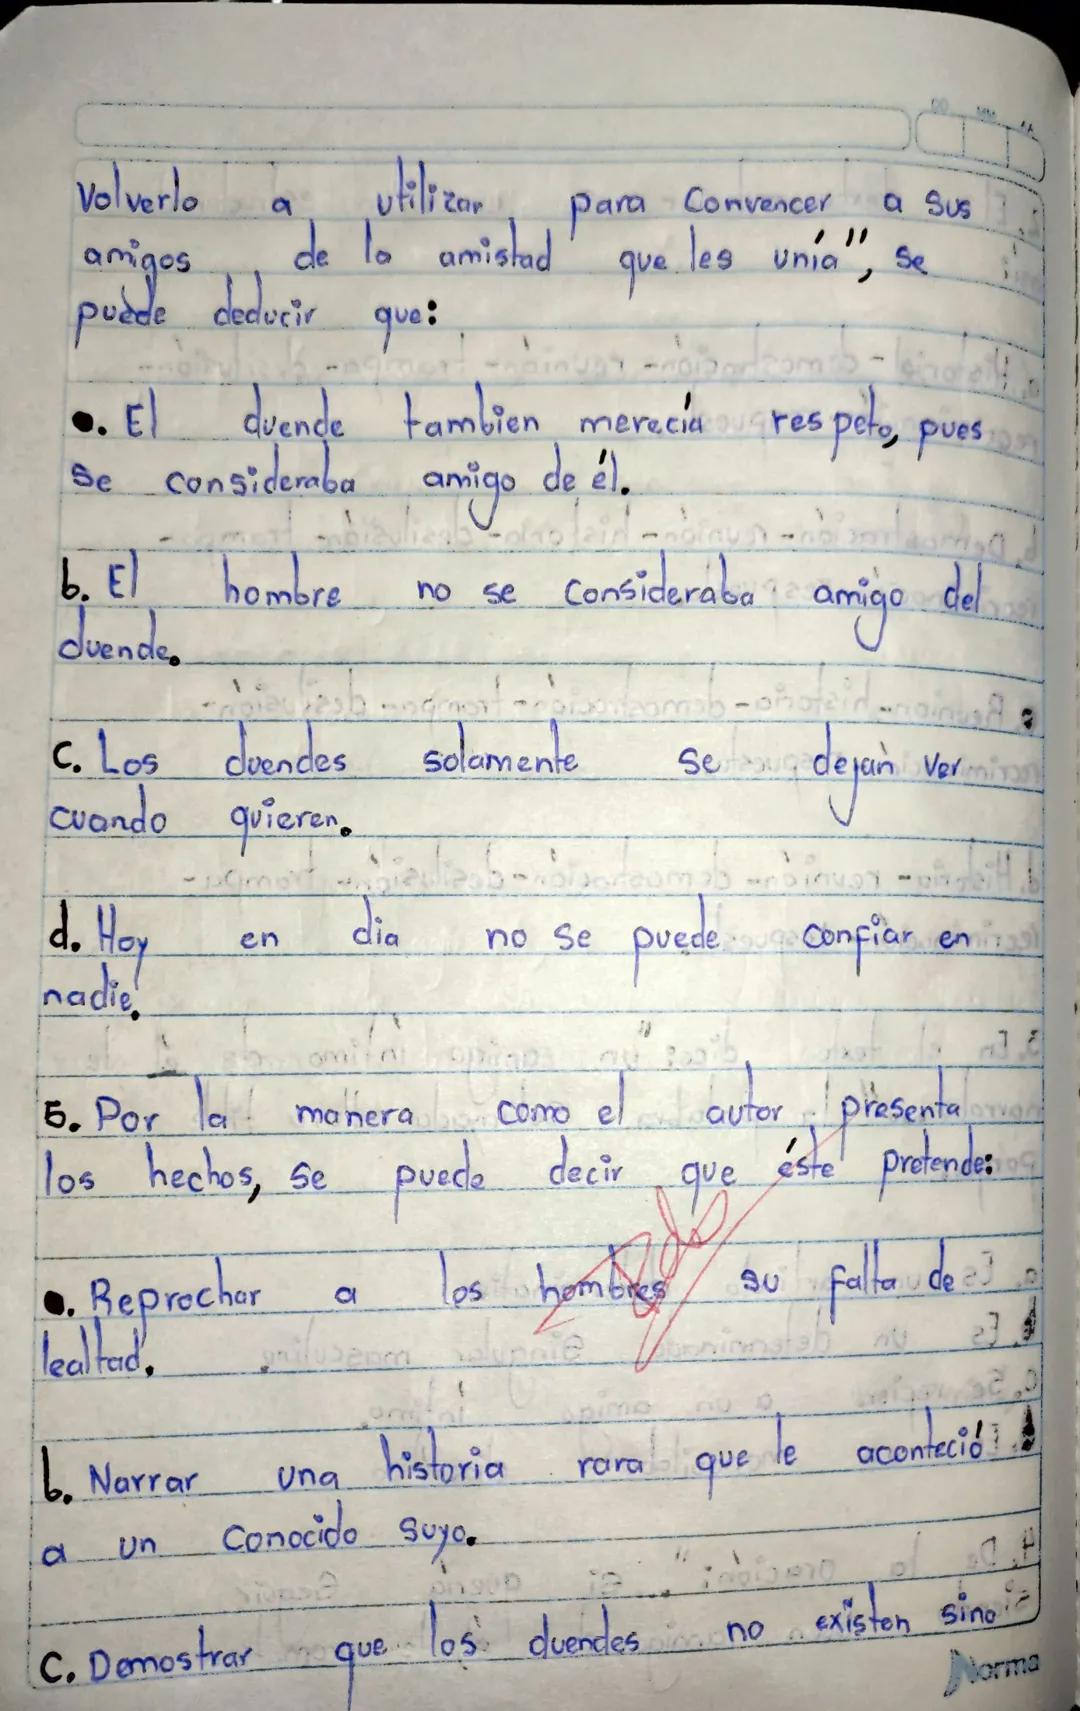 Volverlo a utilizar para Convencer a sus
amigos de la amistad que les unía", se
puede deducir que:
●. El duende tambien merecía respeto, pues
se consideraba amigo de él.
b. El hombre no se consideraba amigo del
duende.
C. Los duendes solamente se dejan ver
cuando quieren.
d. Hoy en dia no se puede confiar en
nadie.
5. Por la manera como el autor presenta
los hechos, se puede decir que éste pretende:
●. Reprochar a los hombres su falta de
lealtad.
b. Narrar una historia rara que le aconteció
a un Conocido suyo.
C. Demostrar que los duendes no existen sino
Norma